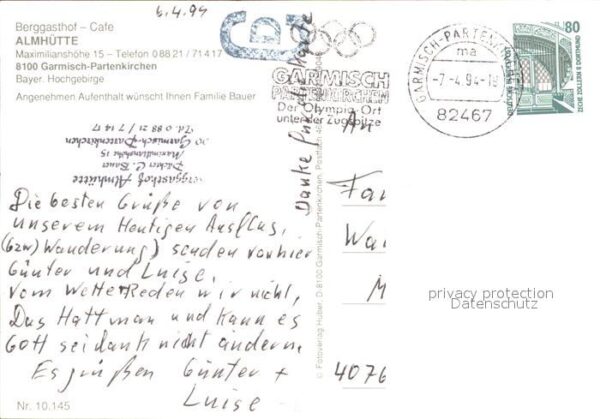 6.4.94
Berggasthof – Cafe
ALMHÜTTE
Maximilianshöhe 15 – Telefon 0 88 21 / 71 4 17
8100 Garmisch-Partenkirchen
Bayer. Hochgebirge
Angenehmen Aufenthalt wünscht Ihnen Familie Bauer
Berggasthof Almhütte
Pächter C. Bauer
Maximilianshöhe 15
00 Garmisch-Partenkirchen
Tel. 0 88 21 / 7 14 17
Die besten Grüße von
unserem Heutigen Ausflug,
(bzw) Wanderung) senden von hier
Günter und Luise.
Vom Wetter Reden wir nicht,
Das Hatt man und kann es
Gott sei dank nicht ändern.
Es grüßen Günter +
Luise
Nr. 10.145
Danke für Karte
© Fotoverlag Huber, D-8100 Garmisch-Partenkirchen, Postfach
GARMISCH
PARTENKIRCHEN
Der Olympia-Ort
unter der Zugspitze
GARMISCH-PARTEN
ma
-7.-4.94-18
82467
80
ZECHE ZOLLERN II DORTMUND
An
Fa
Wa
M
4076
privacy protection
Datenschutz